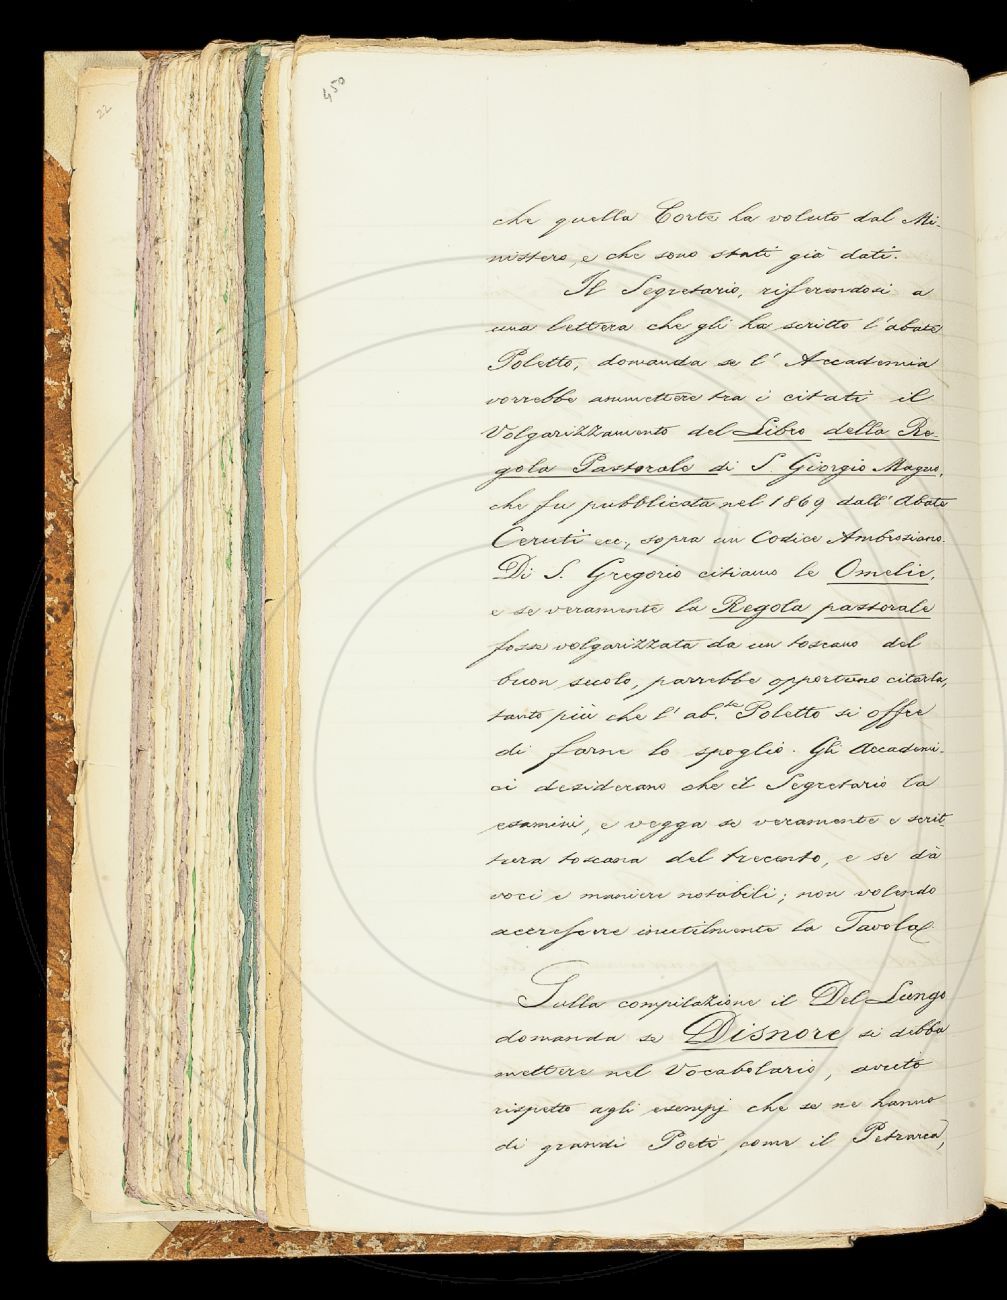 450
22
che quella Corte ha voluto dal Mi-
nistero, e che sono stati già dati.
Il Segretario, riferendosi a
una lettera che gli ha scritto l'abate
Poletto, domanda se l'Accademia
vorrebbe ammettere tra i citati il
Volgarizzamento del Libro della Re-
gola Pastorale di S. Giorgio Magno,
che fu pubblicata nel 1869 dall'Abate
Ceruti ecc., sopra un Codice Ambrosiano.
Di S. Gregorio citiamo le Omelie,
e se veramente la Regola pastorale
fosse volgarizzata da un toscano del
buon secolo, parrebbe opportuno citarla,
tanto più che l'ab.te Poletto si offre
di farne lo spoglio. Gli Accademi-
ci desiderano che il Segretario la
esamini, e vegga se veramente e scrit-
tura toscana del trecento, e se dà
voci e maniere notabili; non volendo
accrescere inutilmente la Tavola.
Sulla compilazione il Del Lungo
domanda se Disnore si debba
mettere nel Vocabolario, avuto
rispetto agli esempj che se ne hanno
di grandi Poeti, come il Petrarca,